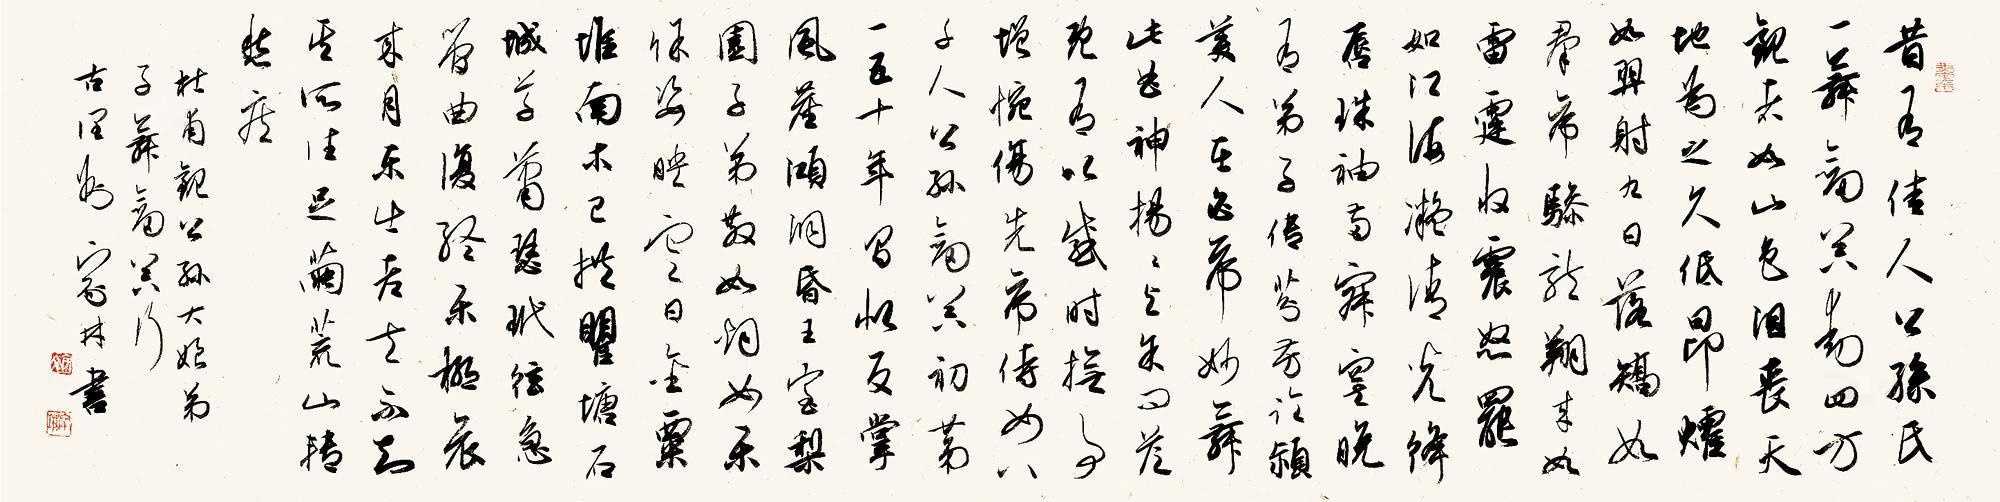 昔有佳人公孫氏
一舞劍器動四方
觀者如山色沮喪天
地為之久低昂燿
如羿射九日落矯如
羣帝驂龍翔来如
雷霆收震怒罷
如江海凝清光絳
唇珠袖兩寂寞晚
有弟子傳芬芳臨潁
美人在白帝妙舞
此曲神揚揚與余問答
既有以感時撫事
增惋傷先帝侍女八
千人公孫劍器初第
一五十年間似反掌
風塵澒洞昏王室梨
園子弟散如烟女樂
餘姿映寒日金粟
堆南木已拱瞿塘石
城草蕭瑟玳弦急
管曲復終樂極哀
来月東出老夫不知
其所往足繭荒山轉
愁疾
杜甫觀公孫大娘弟
子舞劍器行
古 家林書